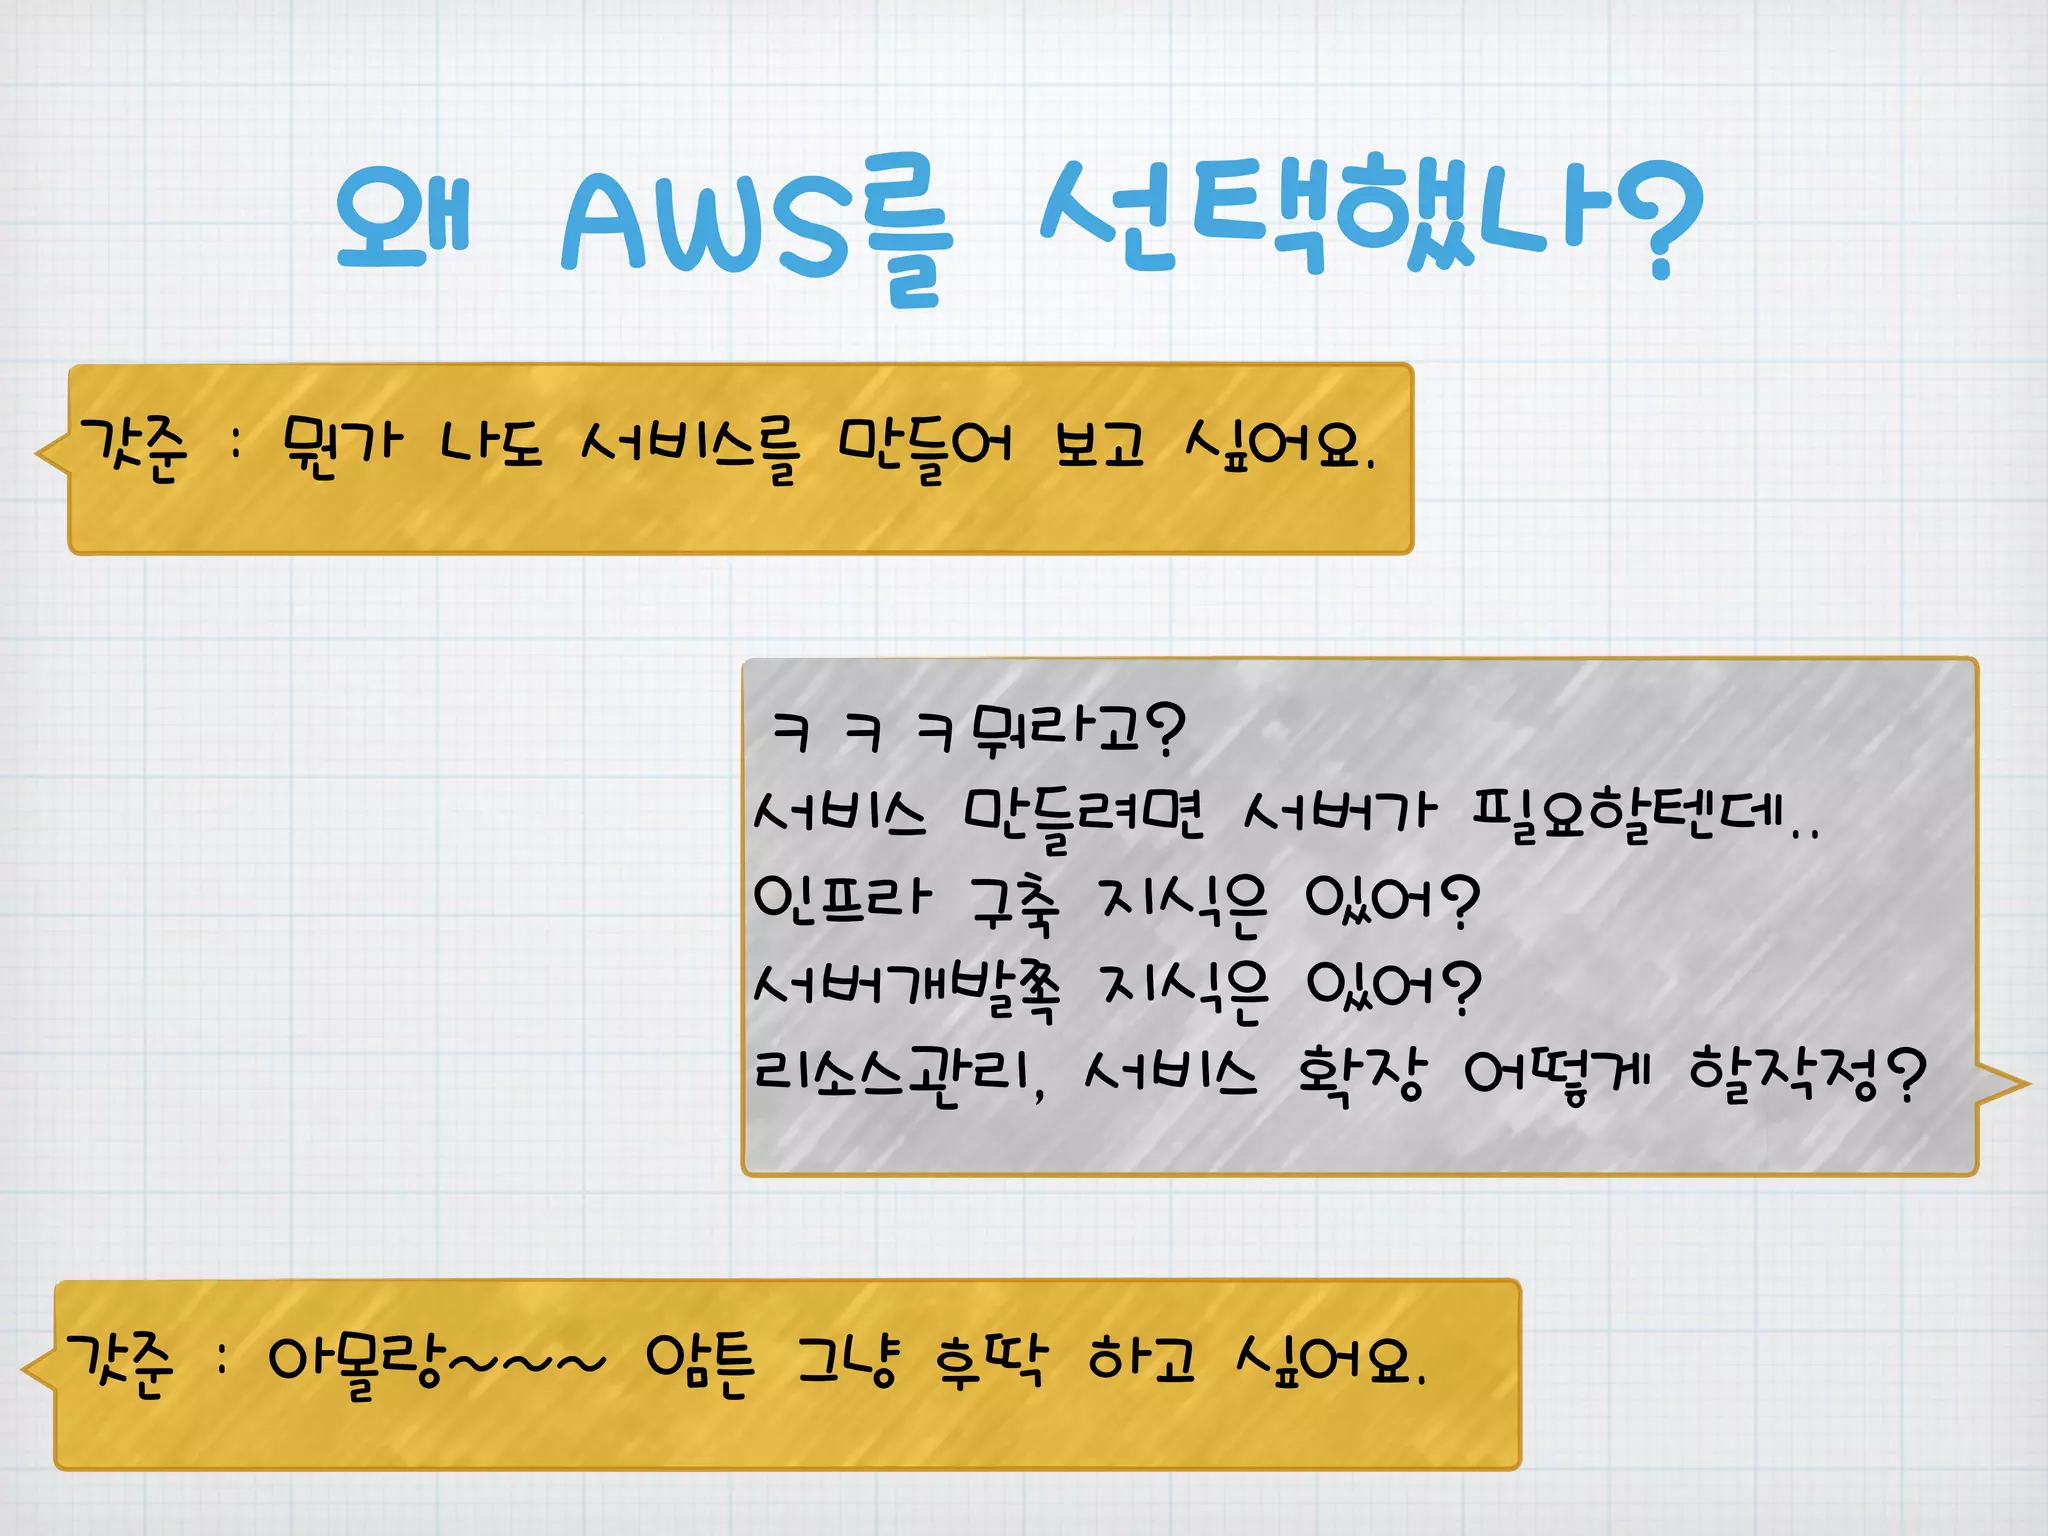 왜 AWS를 선택했나?
갓준 : 뭔가 나도 서비스를 만들어 보고 싶어요.
ㅋㅋㅋ뭐라고?
서비스 만들려면 서버가 필요할텐데..
인프라 구축 지식은 있어?
서버개발쪽 지식은 있어?
리소스관리, 서비스 확장 어떻게 할작정?
갓준 : 아몰랑~~~ 암튼 그냥 후딱 하고 싶어요.